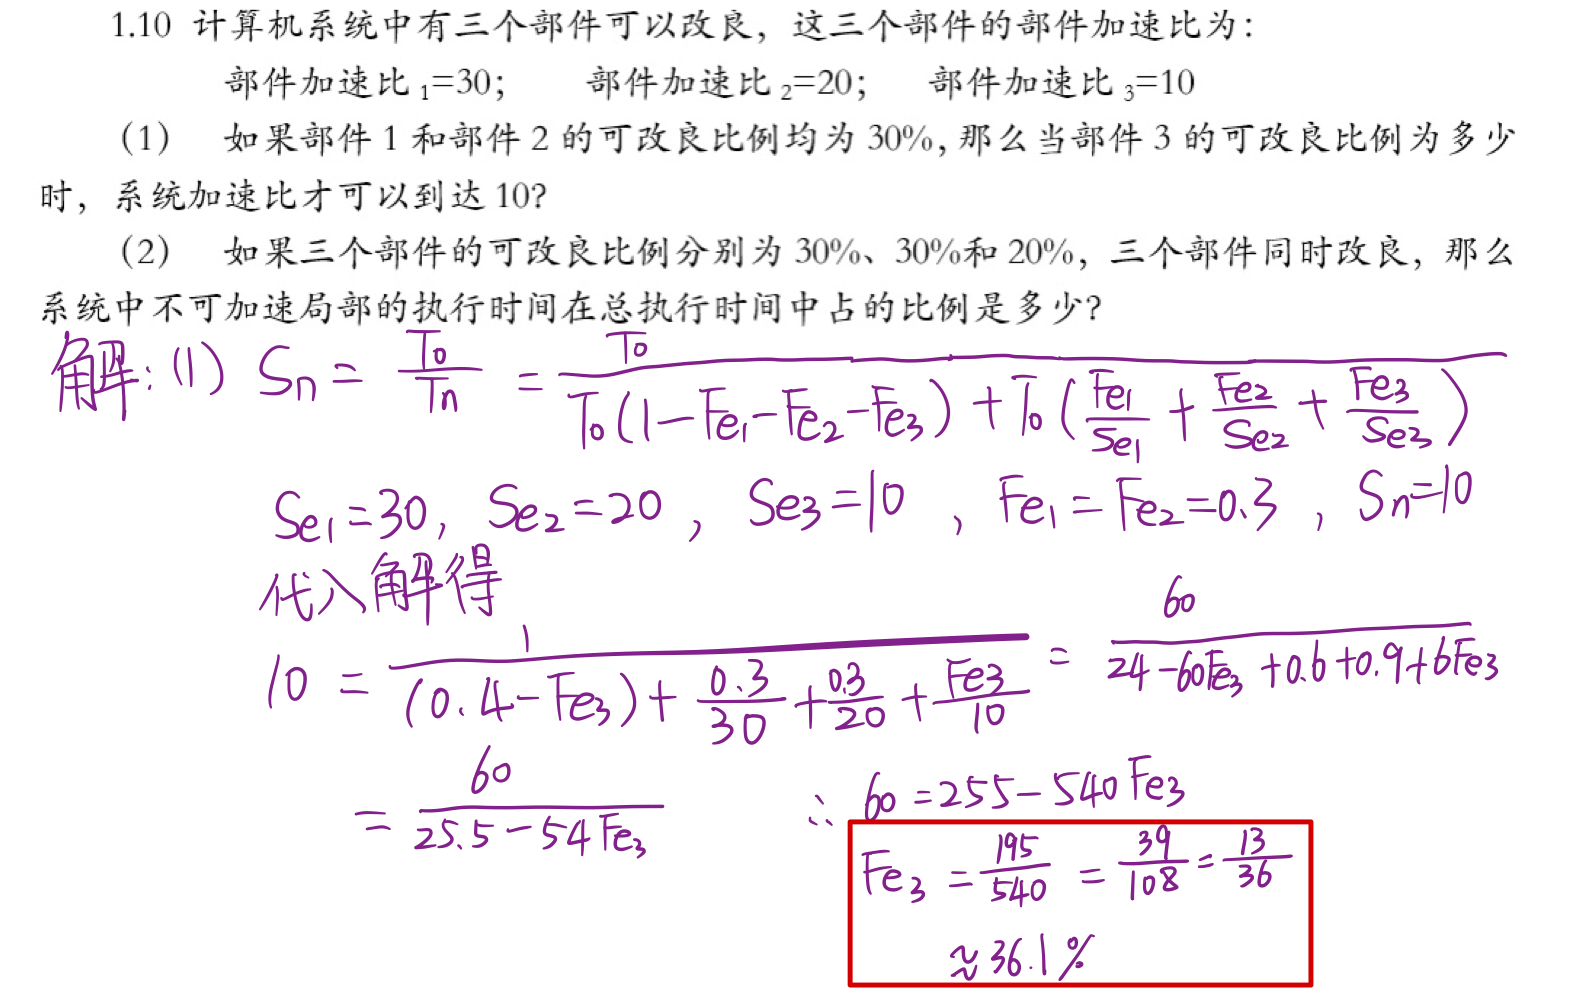 1.10 计算机系统中有三个部件可以改良，这三个部件的部件加速比为：
部件加速比 ₁=30； 部件加速比 ₂=20； 部件加速比 ₃=10
（1） 如果部件 1 和部件 2 的可改良比例均为 30%，那么当部件 3 的可改良比例为多少
时，系统加速比才可以到达 10?
（2） 如果三个部件的可改良比例分别为 30%、30%和 20%，三个部件同时改良，那么
系统中不可加速局部的执行时间在总执行时间中占的比例是多少?
解：(1) Sn = T₀/Tn = T₀/(T₀(1-Fe₁-Fe₂-Fe₃) + T₀(Fe₁/Se₁ + Fe₂/Se₂ + Fe₃/Se₃))
Se₁=30, Se₂=20, Se₃=10, Fe₁=Fe₂=0.3, Sn=10
代入解得
10 = 1/((0.4-Fe₃) + 0.3/30 + 0.3/20 + Fe₃/10) = 60/(24-60Fe₃+0.6+0.9+6Fe₃)
= 60/(25.5-54Fe₃) ∴ 60=255-540Fe₃
Fe₃ = 195/540 = 39/108 = 13/36
≈36.1%